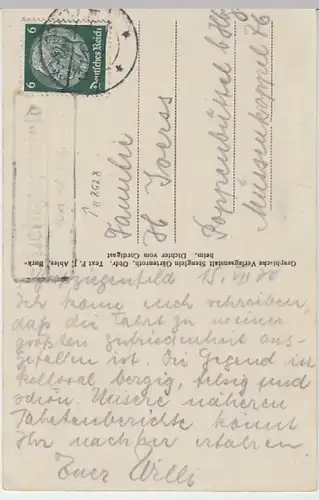 6
Deutsches Reich
Familie
H Joerss
Poppenbüttel b/Hbg
Müssenkoppel 76
1 " 8628
Graphische Verlagsanstalt Stenglein Gärtenroth, Obfr. Text F. J. Ahles, Burk-
heim, Dichter vom Cordigast
15. VII
Ich kann euch schreiben,
daß die Fahrt zu meiner
größten Zufriedenheit aus-
gefallen ist. Die Gegend ist
bergig, felsig und
schön. Unsere näheren
Fahrtenberichte könnt
Ihr nachher erfahren
Euer Willi